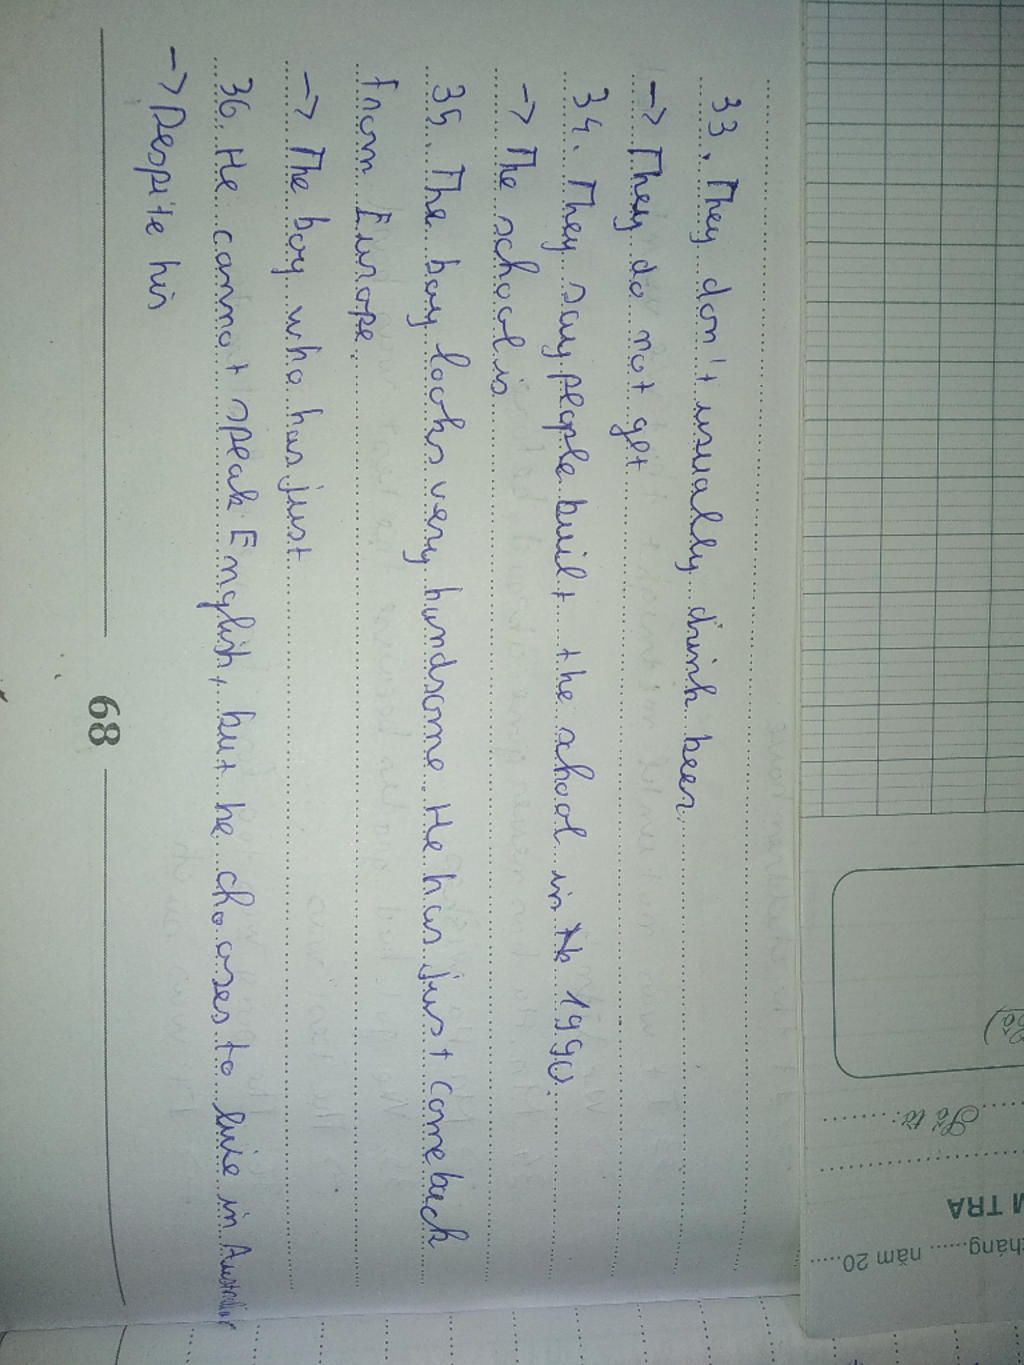 33. They don't usually drink beer.
-> They do not get
34. They say people built the school in 1990.
-> The school is
35. The boy looks very handsome. He has just come back
from Europe.
-> The boy who has just
36. He cannot speak English, but he chooses to live in Australia
-> Despite his
68
Số tờ:
M TRA
tháng...... năm 20.....